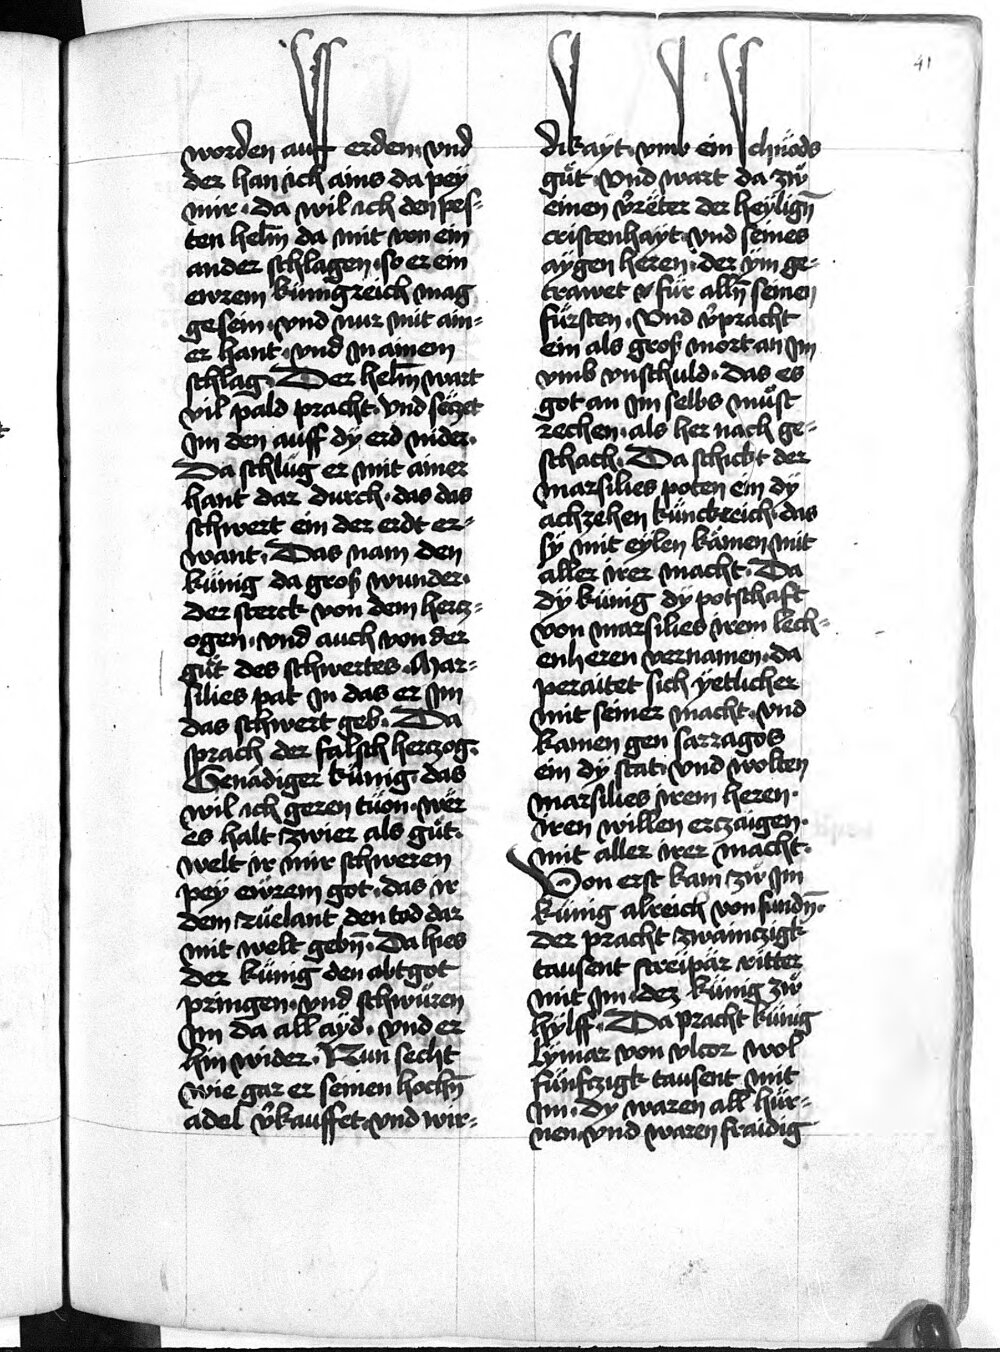 41
worden auff erden. vnd
der han ich ains da pey
mir. da wil ich den pes-
ten helm̄ da mit von ein
ander schlagen. so er ein
ewrem künigreich mag
gesein. vnd nur mit ain-
er hant. vnd in ainem
schlag. Der helm̄ wart
vil pald pracht. vnd setzet
im den auff dÿ erd nider.
Da schlůg er mit ainer
hant dar durch. das das
schwert ein der erdt er-
want. Das nam den
künig da groß wunder.
der sterck von dem hercz-
ogen. vnd auch von der
gůt des schwertes. Mar-
silies pat in das er im
das schwert geb. Da
sprach der falsch herczog.
Genädiger künig. das
wil ich geren tůon. wër
es halt zwier als gůt.
welt ir mir schweren
pey ewrem got. das ir
dem růelant den tod dar
mit welt gebn̄. Da hies
der künig den abtgot
pringen. vnd schwůren
im da all ayd. vnd er
hin wider. Nun secht
wie gar er seinen hochn̄
adel v̉kauffet. vnd wir-
dikayt. vmb ein schnöds
gůt. Vnd wart da zů
einen v̉räter der heylign̄
cristenhayt. vnd seines
aygen heren. der ÿm ge-
trawet für alln̄ seinen
fürsten. Vnd v̉pracht
ein als groß mort an im
vmb vnschuld. das es
got an im selbs můst
rechen. als her nach ge-
schach. Da schickt der
marsilies poten ein dÿ
achzehen künckreich. das
sÿ mit eylen kämen mit
aller irer macht. Da
dÿ künig dÿ potschaft
von marsilies irem lech-
enheren vernamen. da
peraitet sich ÿetlicher
mit seiner macht. vnd
kamen gen sarragos
ein dÿ stat. vnd wolten
marsilies irem heren.
iren willen erczaigen.
mit aller irer macht.
Von erst kam zů im
künig alreich von fundn̄.
der pracht zwainczigk
tausent streipär ritter
mit im. dez künig zů
hÿlff. Da pracht künig
lÿmar von vlcor wol
fünfczigk tausent mit
im. dy waren all hür-
nen. vnd waren fraidig